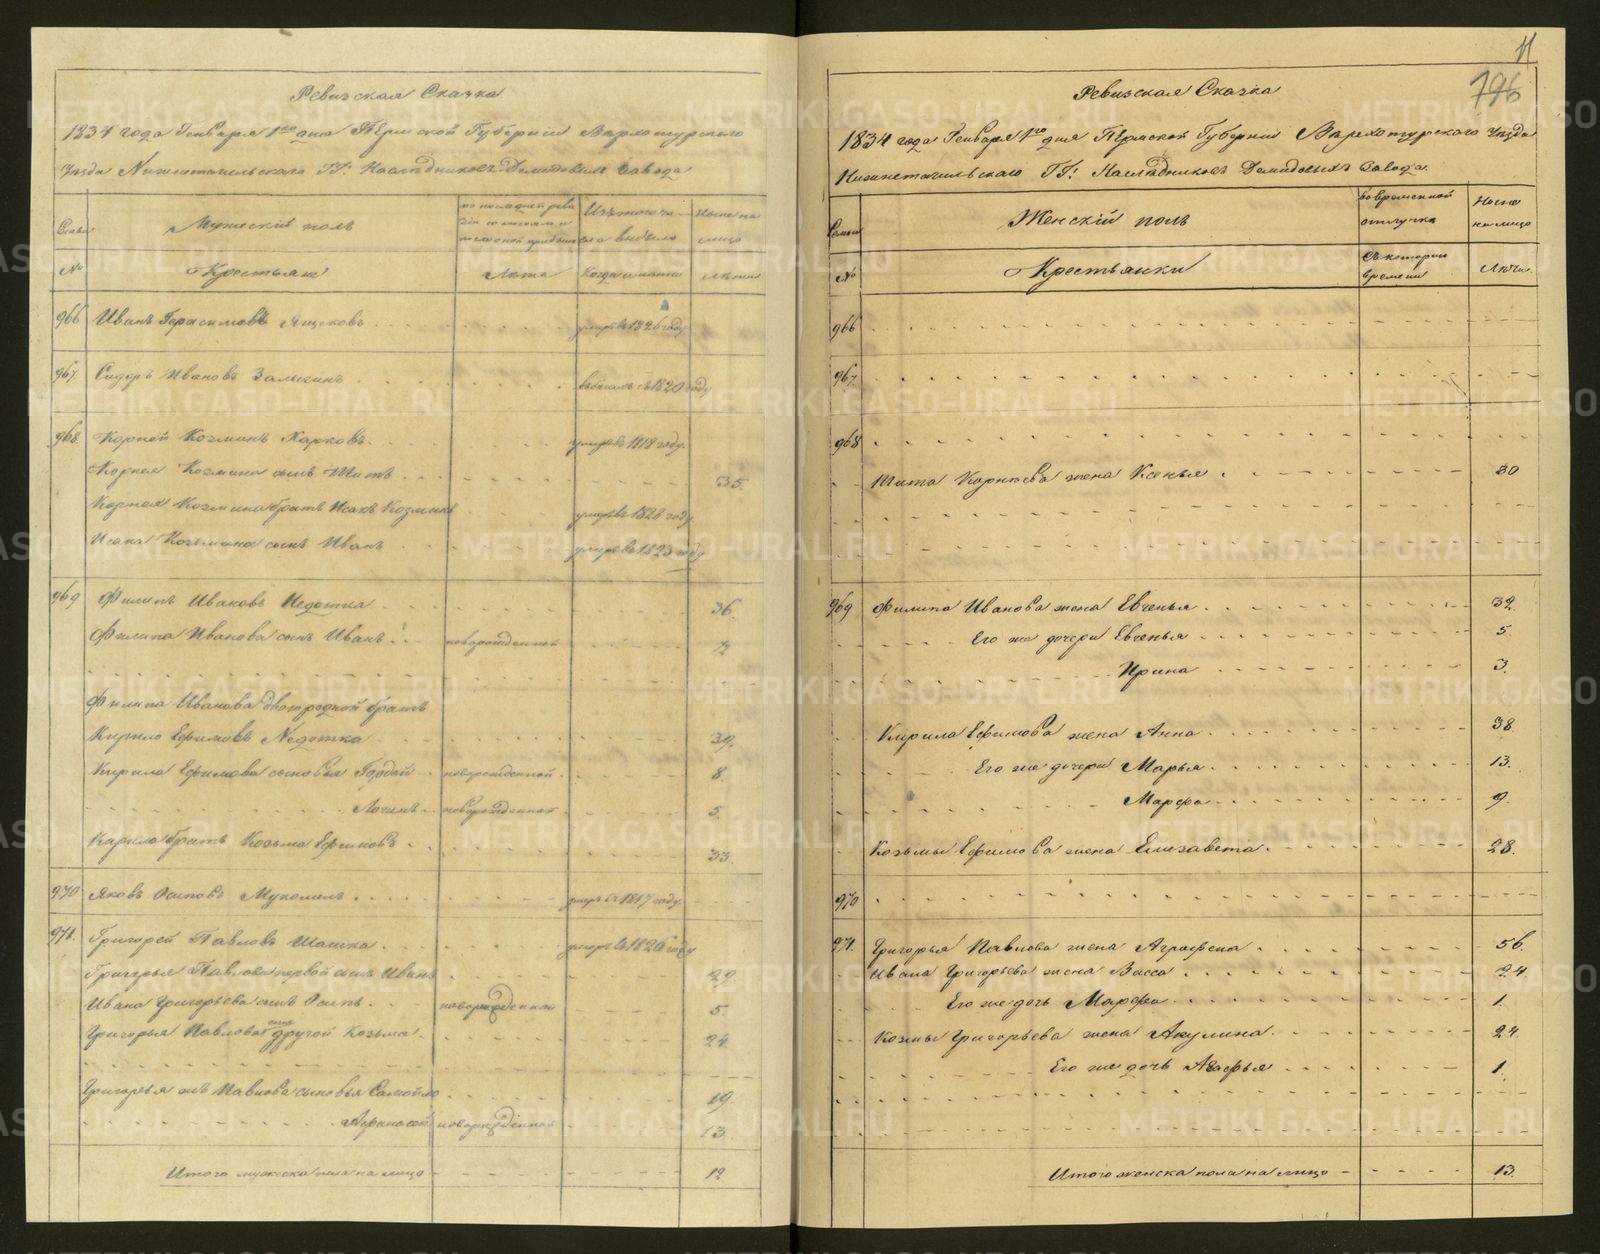 Ревизская Сказка
1834 года Генваря 1го дня Пермской Губернии Верхотурского
Уезда Нижнетагильского ГГ: Наследников Демидовых Завода
Семьи
Мужеский полъ
по последней реви
зии состояло и
Изъ того чи-
сла выбыло
Ныне на
лицо
№
Крестьяне
Лета
когда именно
Лета
966 Иванъ Герасимовъ Ящековъ умеръ в 1826 году
967. Сидоръ Ивановъ 1820 году
968. Корней Козминъ Харковъ умеръ в 1818 году.
Корнея Козмина сынъ Титъ 35.
Корнея Козмина братъ Исакъ Козминъ умеръ в 1828 году
Исака Козьмина сынъ Иванъ умеръ в 1823 году
969 Филипъ Ивановъ Недотка 36.
Филипа Иванова сынъ Иванъ новорожденной 12
Филипа Иванова двоюродной братъ
Кирило Ефимовъ Недотка 39.
Кирила Ефимова сыновья Гордей новорожденной 8
Логинъ новорожденной 5.
Кирила братъ Козьма Ефимовъ 33.
970 Яковъ Осиповъ умеръ в 1817 году.
971. Григорей Павловъ Шашка умеръ в 1820 году
Григорья Павлова первой сынъ Иванъ 29.
Ивана Григорьева сынъ Осипъ новорожденной 5.
Григорья Павлова сынъ другой Козьма 24.
Григорья жъ Павлова сыновья Самойло 19.
Афанасей новорожденной 13
Итого мужеска пола на лицо 12
11
796
Ревизская Сказка
1834 года Генваря 1го дня Пермской Губернии Верхотурского Уезда
Нижнетагильскаго ГГ: Наследниковъ Демидовыхъ Завода
Семьи
Женскій полъ
во временной
отлучке
Ныне
на лицо
№
Крестьянки
Съ котораго
времени
Лета
966
967.
968
Тита Корнеева жена Ксенья 30
969 Филипа Иванова жена Евгенья 32.
Его же дочери Евгенья 5.
Ирина 3.
Кирила Ефимова жена Анна 38.
Его же дочери Марья 13.
Марфа 9.
Козьмы Ефимова жена Елизавета 28.
970
971. Григорья Павлова жена Аграфена 56.
Ивана Григорьева жена Васса 24.
Его же дочь Марфа 1.
Козмы Григорьева жена Акулина 24.
Его же дочь Агафья 1.
Итого женска пола на лицо 13.
METRIKI.GASO-URAL.RU